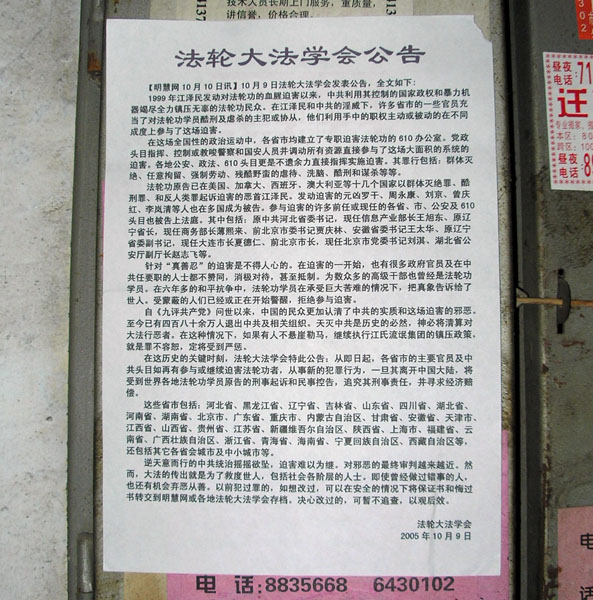 技术人员长期上门服务，重质量，
讲信誉，价格合理。
4137
法轮大法学会公告
【明慧网10月10日讯】10月9日法轮大法学会发表公告，全文如下：
1999年江泽民发动对法轮功的血腥迫害以来，中共利用其控制的国家政权和暴力机
器竭尽全力镇压无辜的法轮功民众。在江泽民和中共的淫威下，许多省市的一些官员充
当了对法轮功学员酷刑及虐杀的主犯或协从，他们利用手中的职权主动或被动的在不同
成度上参与了这场迫害。
在这场全国性的政治运动中，各省市均建立了专职迫害法轮功的610办公室。党政
头目指挥、控制或教唆警察和国安人员并调动所有资源直接参与了这场大面积的系统的
迫害。各地公安、政法、610头目更是不遗余力直接指挥实施迫害。其罪行包括：群体灭
绝、任意拘留、强制劳动、残酷野蛮的虐待、洗脑、酷刑和谋杀等等。
法轮功原告已在美国、加拿大、西班牙、澳大利亚等十几个国家以群体灭绝罪、酷
刑罪、和反人类罪起诉迫害的恶首江泽民。发动迫害的元凶罗干、周永康、刘京、曾庆
红、李岚清等人也在多国成为被告。参与迫害的许多前任或现任的各省、市、公安及610
头目也被告上法庭。其中包括：原中共河北省委书记，现任信息产业部长王旭东、原辽
宁省长，现任商务部长薄熙来、前北京市委书记贾庆林、安徽省委书记王太华、原辽宁
省委副书记，现任大连市长夏德仁、前北京市长，现任北京市党委书记刘淇、湖北省公
安厅副厅长赵志飞等。
针对“真善忍”的迫害是不得人心的。在迫害的一开始，也有很多政府官员及在中
共任要职的人士都不赞同，消极对待，甚至抵制。为数众多的高级干部也曾经是法轮功
学员。在六年多的和平抗争中，法轮功学员在承受巨大苦难的情况下，把真象告诉给了
世人。受蒙蔽的人们已经或正在开始警醒，拒绝参与迫害。
自《九评共产党》问世以来，中国的民众更加认清了中共的实质和这场迫害的邪恶。
至今已有四百八十余万人退出中共及相关组织。天灭中共是历史的必然，神必将清算对
大法行恶者。在这种情况下，如果有人不悬崖勒马，继续执行江氏流氓集团的镇压政策，
就是罪不容恕，定将受到严惩。
在这历史的关键时刻，法轮大法学会特此公告：从即日起，各省市的主要官员及中
共头目如再有参与或继续迫害法轮功者，从事新的犯罪行为，一旦其离开中国大陆，将
受到世界各地法轮功学员原告的刑事起诉和民事控告，追究其刑事责任，并寻求经济赔
偿。
这些省市包括：河北省、黑龙江省、辽宁省、吉林省、山东省、四川省、湖北省、
河南省、湖南省、北京市、广东省、重庆市、内蒙古自治区、甘肃省、安徽省、天津市、
江西省、山西省、贵州省、江苏省、新疆维吾尔自治区、陕西省、上海市、福建省、云
南省、广西壮族自治区、浙江省、青海省、海南省、宁夏回族自治区、西藏自治区等，
还包括其它各省会城市及中小城市等。
逆天意而行的中共统治摇摇欲坠，迫害难以为继，对邪恶的最终审判越来越近。然
而，大法的传出就是为了救度世人，包括社会各阶层的人士，即使曾经做过错事的人，
也还有机会弃恶从善。以前犯过罪的，如想改过，可以在安全的情况下将保证书和悔过
书转交到明慧网或各地法轮大法学会存档。决心改过的，可暂不追查，以观后效。
法轮大法学会
2005年10月9日
电 话:8835668 6430102
昼夜
电话：71
迁
本区：80
跨区：100
昼夜
电话：8